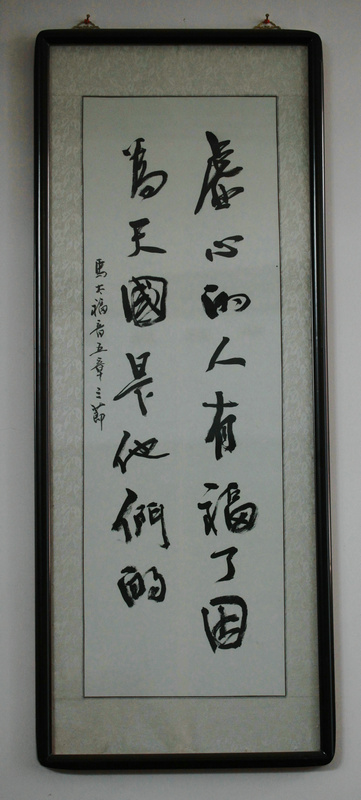 虛心的人有福了因
為天國是他們的
馬太福音五章三節